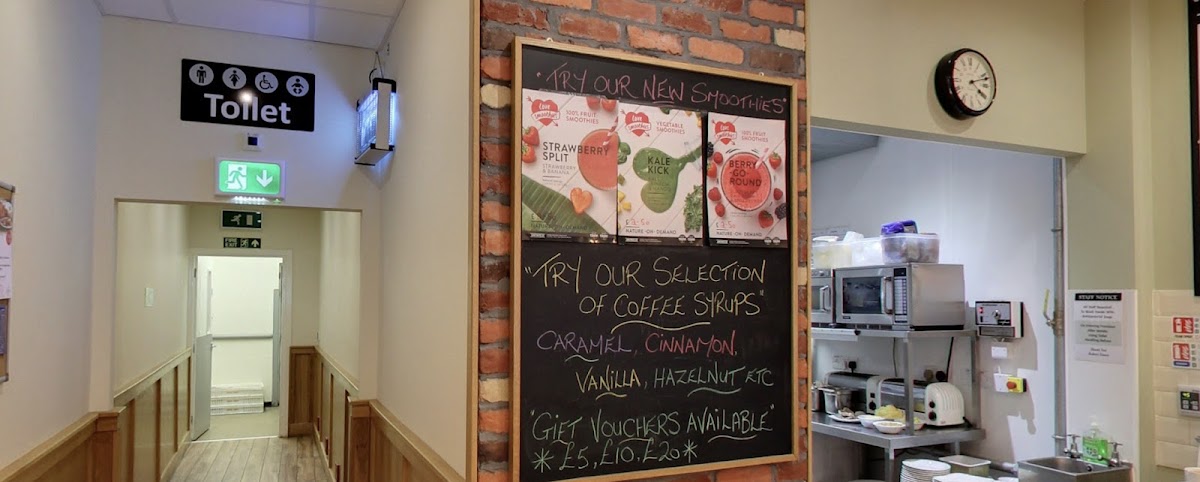 Toilet
FIRE EXIT
"TRY OUR NEW SMOOTHIES"
Love smoothies
100% FRUIT SMOOTHIES
STRAWBERRY SPLIT
STRAWBERRY & BANANA
Love smoothies
VEGETABLE SMOOTHIES
KALE KICK
NATURE-ON-DEMAND
Love smoothies
100% FRUIT SMOOTHIES
BERRY GO-ROUND
NATURE-ON-DEMAND
"TRY OUR SELECTION
OF COFFEE SYRUPS"
CARAMEL, CINNAMON,
VANILLA, HAZELNUT ETC
"GIFT VOUCHERS AVAILABLE"
*£5, £10, £20*
STAFF NOTICE